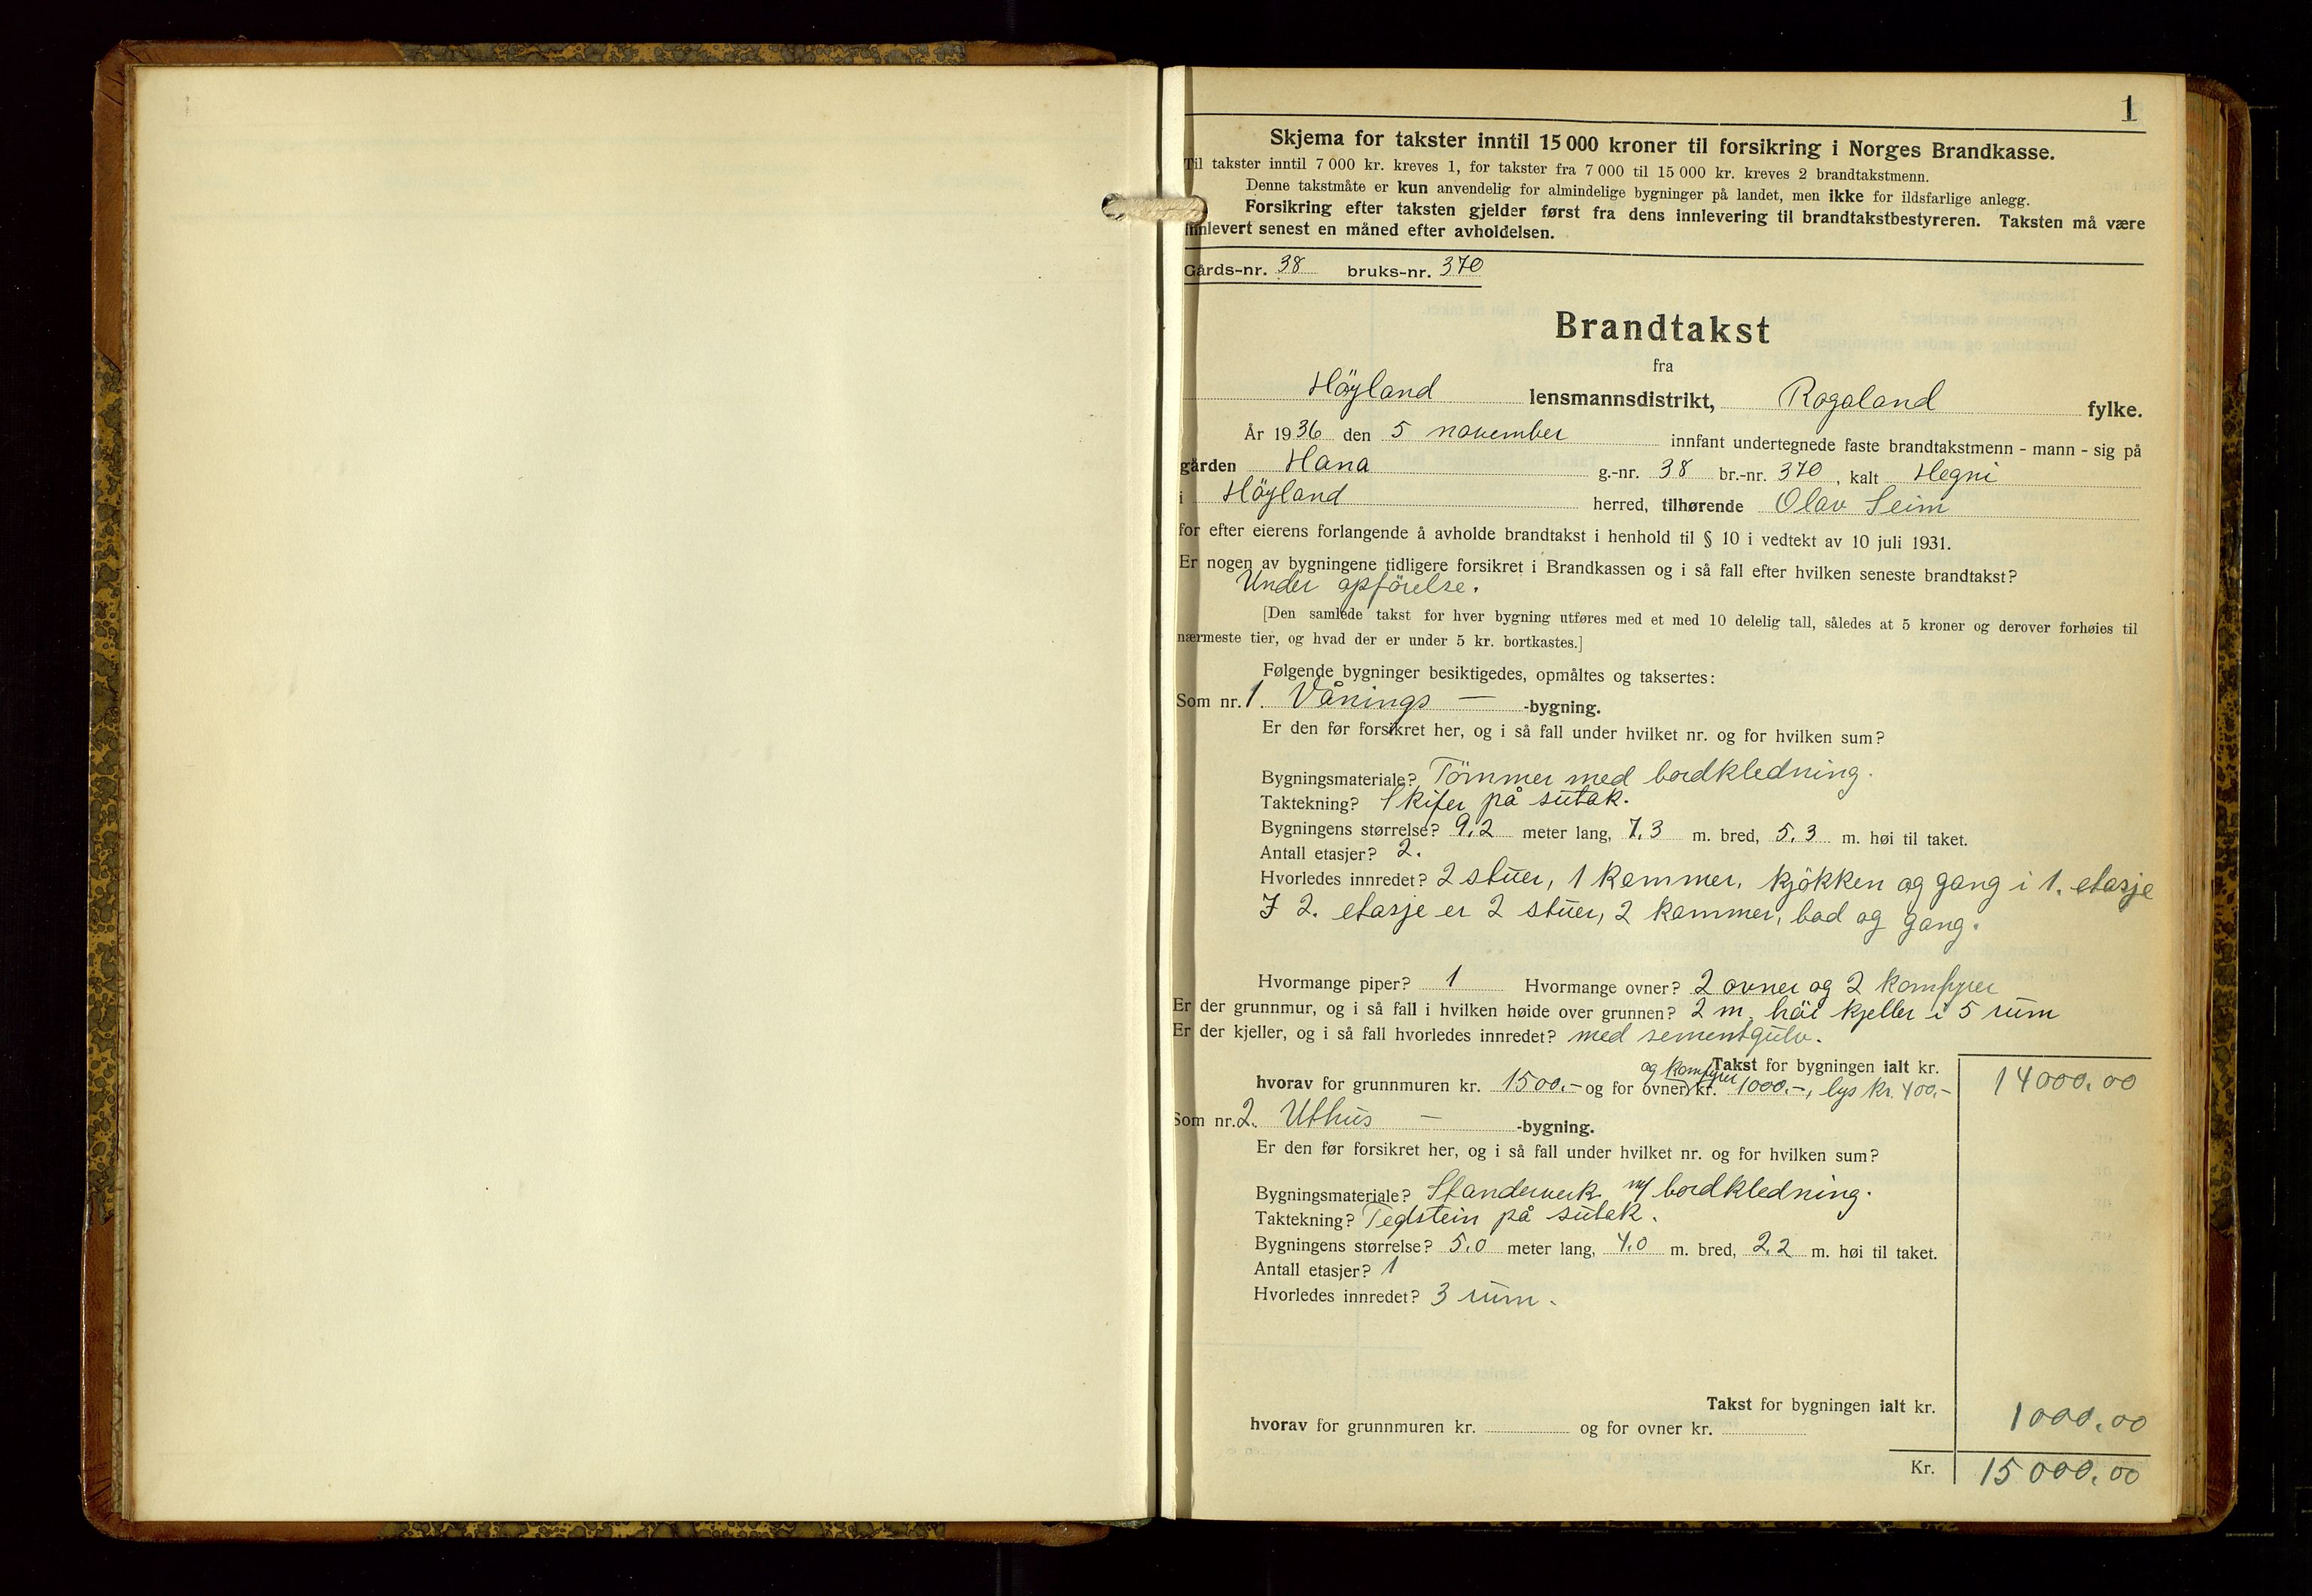 1
Skjema for takster inntil 15 000 kroner til forsikring i Norges Brandkasse.
Til takster inntil 7 000 kr. kreves 1, for takster fra 7 000 til 15 000 kr. kreves 2 brandtakstmenn.
Denne takstmåte er kun anvendelig for almindelige bygninger på landet, men ikke for ildsfarlige anlegg.
Forsikring efter taksten gjelder først fra dens innlevering til brandtakstbestyreren. Taksten må være
innlevert senest en måned efter avholdelsen.
Gårds-nr. 38 bruks-nr. 370
Brandtakst
fra
Höyland lensmannsdistrikt, Rogaland fylke.
År 1936 den 5 november innfant undertegnede faste brandtakstmenn - mann - sig på
gården Hana g.-nr. 38 br.-nr. 370, kalt Hegni
i Höyland herred, tilhørende Olav Seim
for efter eierens forlangende å avholde brandtakst i henhold til § 10 i vedtekt av 10 juli 1931.
Er nogen av bygningene tidligere forsikret i Brandkassen og i så fall efter hvilken seneste brandtakst?
Under opförelse.
[Den samlede takst for hver bygning utføres med et med 10 delelig tall, således at 5 kroner og derover forhøies til
nærmeste tier, og hvad der er under 5 kr. bortkastes.]
Følgende bygninger besiktigedes, opmåltes og taksertes:
Som nr. 1. Vånings — -bygning.
Er den før forsikret her, og i så fall under hvilket nr. og for hvilken sum?
Bygningsmateriale? Tömmer med bordkledning.
Taktekning? Skifer på sutak.
Bygningens størrelse? 9.2 meter lang, 7.3 m. bred, 5.3 m. høi til taket.
Antall etasjer? 2.
Hvorledes innredet? 2 stuer, 1 kammer, kjökken og gang i 1. etasje
I 2. etasje er 2 stuer, 2 kammer, bad og gang.
Hvormange piper? 1 Hvormange ovner? 2 ovner og 2 komfyrer
Er der grunnmur, og i så fall i hvilken høide over grunnen? 2 m. höi kjeller i 5 rum
Er der kjeller, og i så fall hvorledes innredet? med sementgulv.
Takst for bygningen ialt kr.
og komfyrer
hvorav for grunnmuren kr. 1500.- og for ovner kr. 1000.-, lys kr. 400.- 14000.00
Som nr. 2. Uthus — -bygning.
Er den før forsikret her, og i så fall under hvilket nr. og for hvilken sum?
Bygningsmateriale? Standerverk m/ bordkledning.
Taktekning? Teglstein på sutak.
Bygningens størrelse? 5.0 meter lang, 4.0 m. bred, 2.2 m. høi til taket.
Antall etasjer? 1
Hvorledes innredet? 3 rum.
Takst for bygningen ialt kr.
hvorav for grunnmuren kr. og for ovner kr. 1000.00
Kr. 15000.00